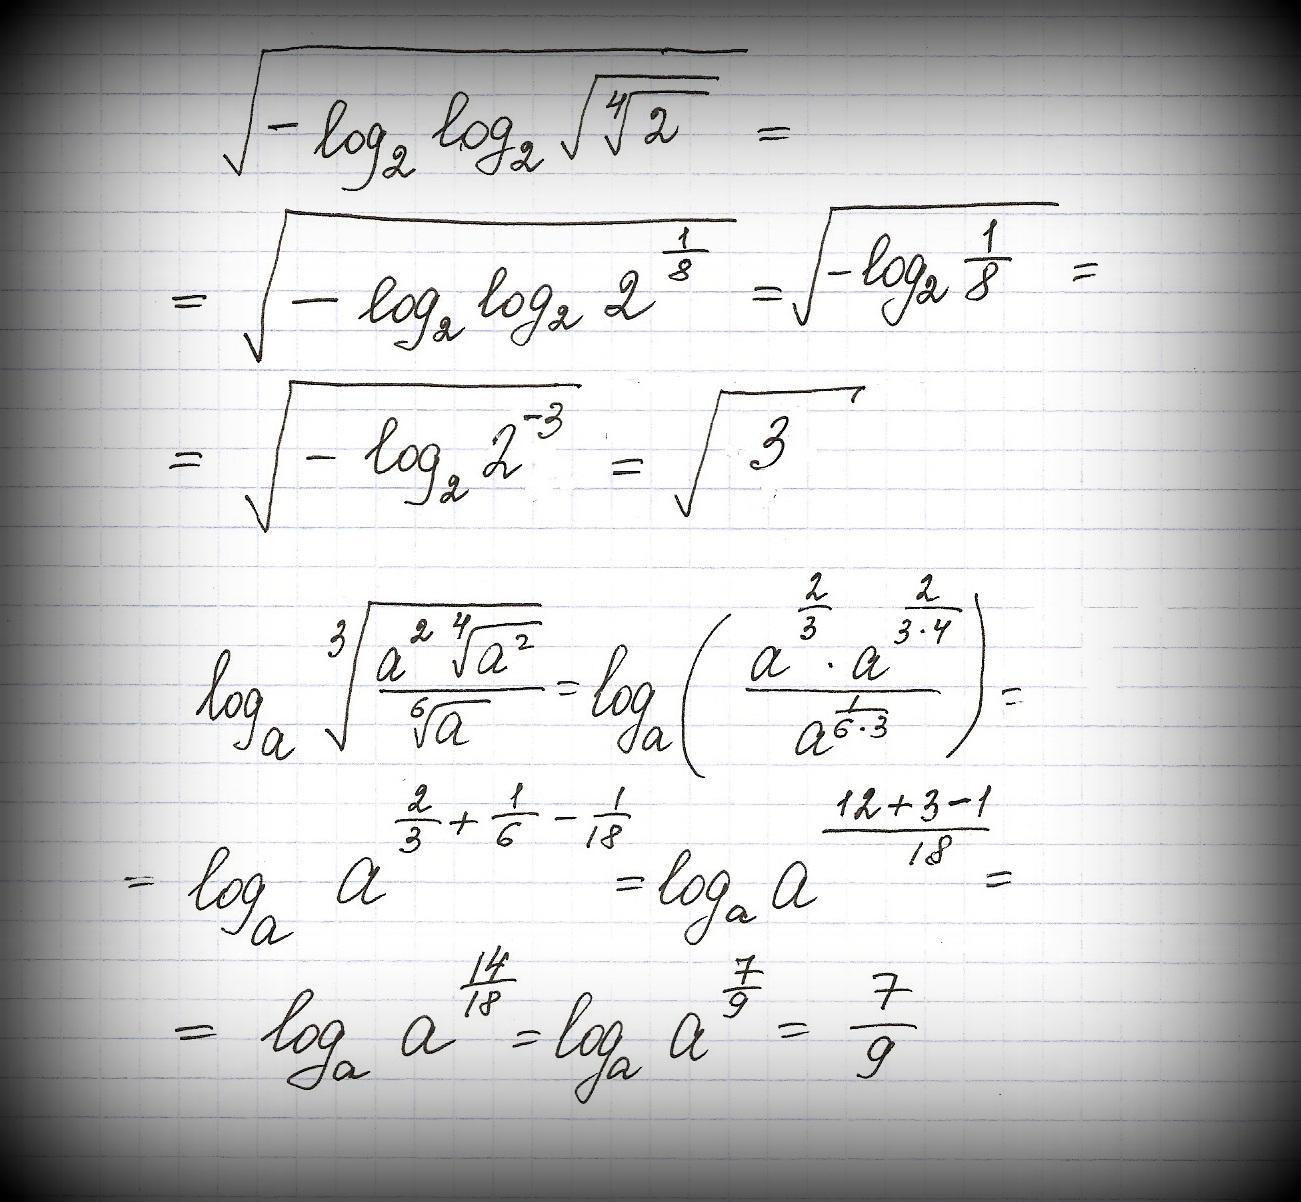 √(-log₂ log₂ √(⁴√2)) =
= √(-log₂ log₂ 2^(1/8)) = √(-log₂ 1/8) =
= √(-log₂ 2^(-3)) = √3
logₐ ³√((a² ⁴√(a²))/(⁶√a)) = logₐ((a^(2/3) · a^(2/(3·4)))/(a^(1/(6·3)))) =
= logₐ a^(2/3 + 1/6 - 1/18) = logₐ a^((12+3-1)/18) =
= logₐ a^(14/18) = logₐ a^(7/9) = 7/9